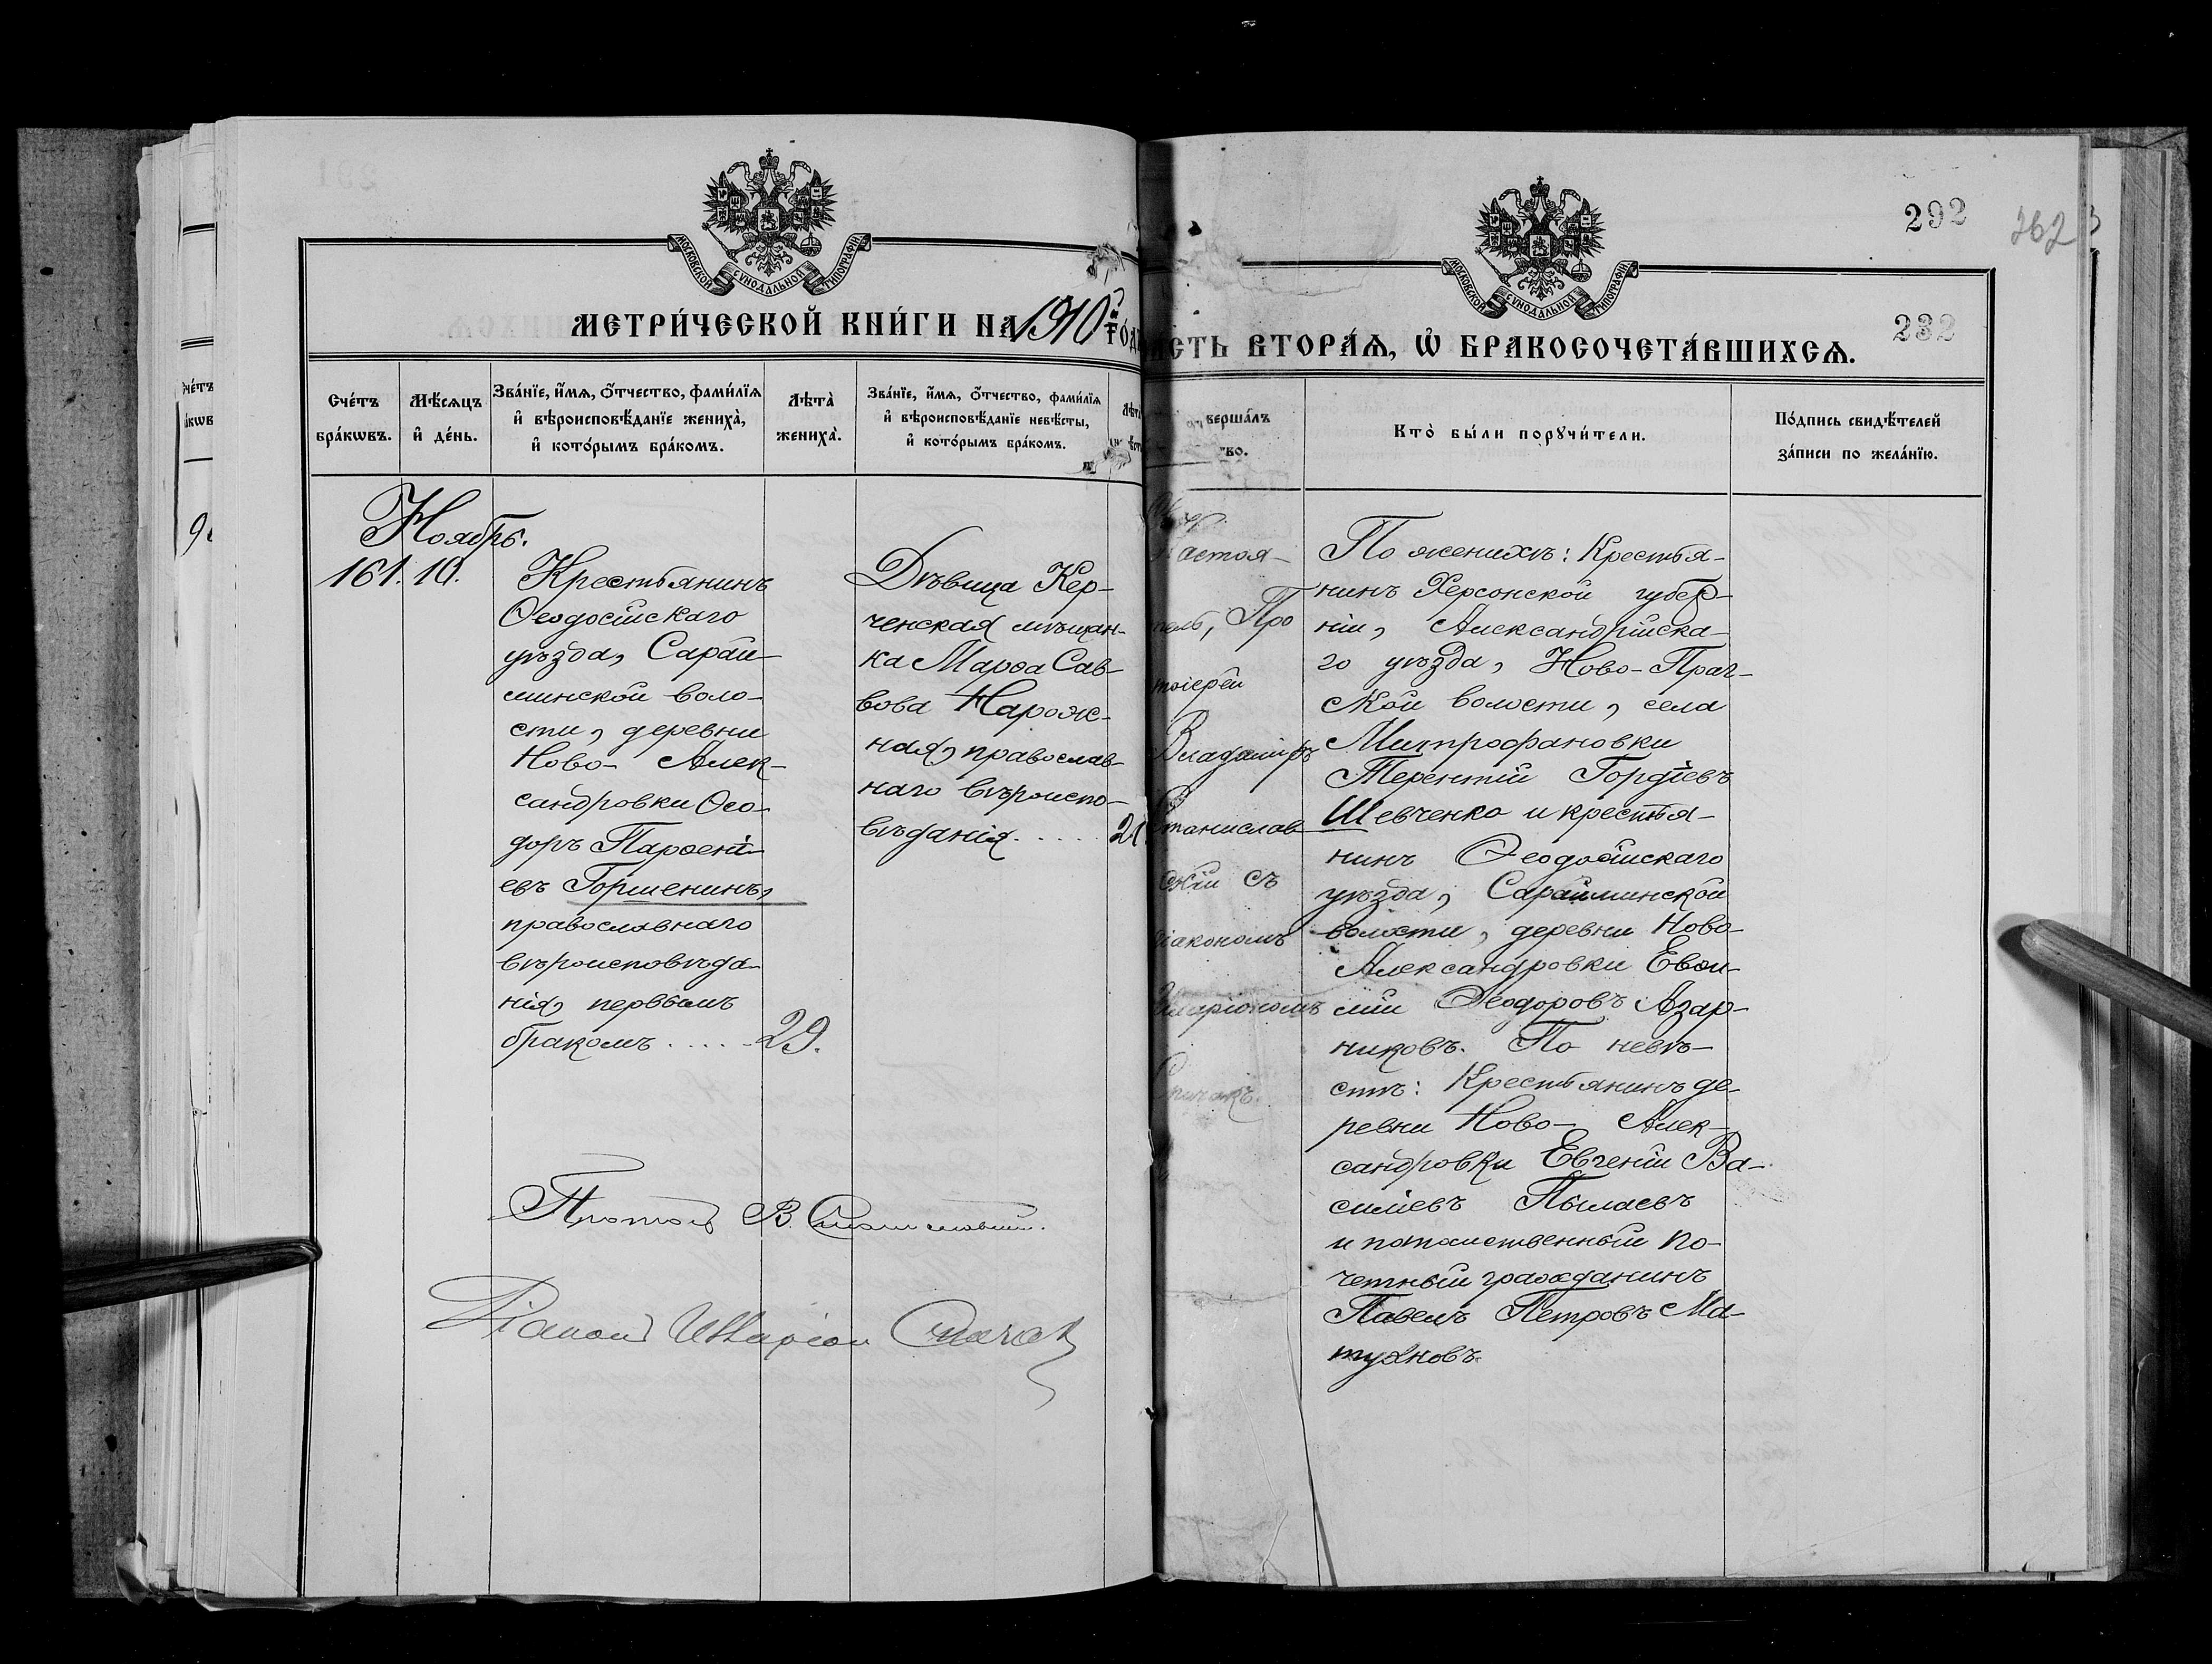 292
262
232
МОСКОВСКОЙ СѴНОДАЛЬНОЙ ТИПОГРАФІИ
МОСКОВСКОЙ СѴНОДАЛЬНОЙ ТИПОГРАФІИ
МЕТРИ́ЧЕСКОЙ КНИ́ГИ НА 1910 ГО́ДЪ
ЧАСТЬ ВТОРА́Я, Ѡ БРАКОСОЧЕТА́ВШИХСѦ.
Сче́тъ
бра́кѡвъ.
Мѣ́сяцъ
и҆ де́нь.
Зва́нїе, и҆́мѧ, ѻ҆́тчество, фами́лїѧ
и҆ вѣроисповѣ́данїе жениха̀,
и҆ кото́рымъ бра́комъ.
Лѣта̀
жениха̀.
Зва́нїе, и҆́мѧ, ѻ҆́тчество, фами́лїѧ
и҆ вѣроисповѣ́данїе невѣ́сты,
и҆ кото́рымъ бра́комъ.
вершáлъ
тво.
Кто̀ бы́ли порꙋчи́тели.
По́дпись свидѣ́телей
за́писи по жела́нїю.
Ноябрь.
161. 10.
Крестьянинъ
Ѳеодосійскаго
уѣзда, Сарай-
минской воло-
сти, деревни
Ново- Алек-
сандровки Ѳео-
доръ Парѳені-
евъ Горшенинъ,
православнаго
вѣроисповѣда-
нія, первымъ
бракомъ ..... 29.
Дѣвица Кер-
ченская мѣщан-
ка Марѳа Сав-
вова Нарож-
ная, православ-
наго вѣроиспо-
вѣданія. .... 21
Настоя-
тель, Про
тоіерей
Владиміръ
Станислав
скій съ
діакономъ
Иларіономъ
Спичакъ.
По женихѣ: Крестья-
нинъ Херсонской губер-
ніи, Александрійска-
го уѣзда, Ново-Праг-
ской волости, села
Митрофановки
Терентій Гордіевъ
Шевченко и крестья-
нинъ Ѳеодосійскаго
уѣзда, Сарайминской
волости, деревни Ново-
Александровки Евѳи-
мій Ѳеодоровъ Азар-
никовъ. По невѣ-
стѣ: Крестьянинъ де-
ревни Ново- Алек-
сандровки Евгеній Ва-
силіевъ Пылаевъ
и потомственный по-
четный гражданинъ
Павелъ Петровъ Ма-
тухновъ.
В. Станиславскій.
Діаконъ Илларіон Спичак